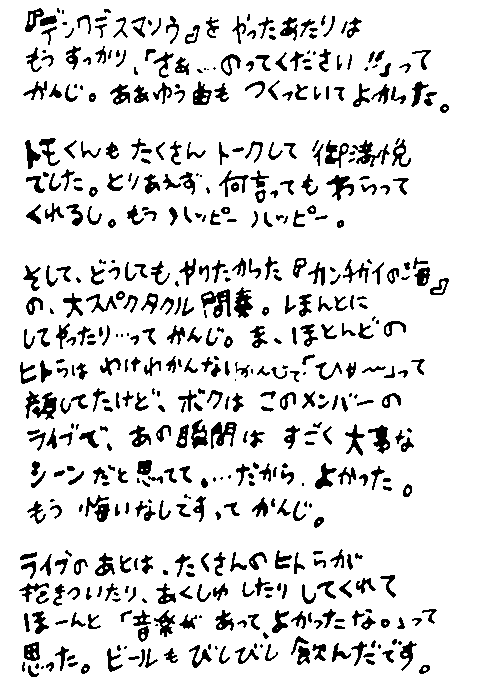 『デンワデスマソウ』を やったあたりは
もう すっかり、「さぁ…のってください!!」って
かんじ。ああゆう曲も つくっといて よかったな。
トモくんも たくさん トークして 御満悦
でした。とりあえず、何言っても わらって
くれるし。もう ハッピー ハッピー。
そして、どうしても、やりたかった『カンチガイの海』
の、大スペクタクル 間奏。ほんとに
してやったり…って かんじ。ま、ほとんどの
ヒトらは わけわかんないかんじで「ひゃ〜」って
顔してたけど、ボクは このメンバーの
ライブで、あの瞬間は すごく 大事な
シーンだと思ってて。…だから、よかった。
もう 悔いなしですって かんじ。
ライブのあとは、たくさんのヒトらが
抱きついたり、あくしゅ したり してくれて
ほーんと 「音楽が あって、よかったな。」って
思った。ビールも びしびし 飲んだです。